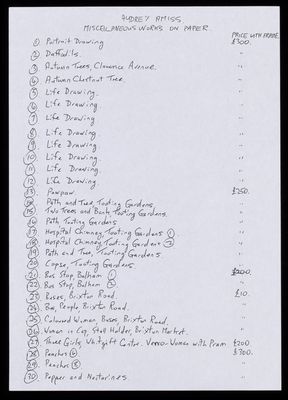 AUDREY AMISS
MISCELLANEOUS WORKS ON PAPER.
PRICE WITH FRAME
1 Portrait Drawing £300.
2 Daffodils. "
3 Autumn Trees, Clarence Avenue. "
4 Autumn Chestnut Tree. "
5 Life Drawing. "
6 Life Drawing. "
7 Life Drawing "
8 Life Drawing. "
9 Life Drawing. "
10 Life Drawing. "
11 Life Drawing. "
12 Life Drawing. "
13 Pawpaw. £250.
14 Path and Tree, Tooting Gardens "
15 Two Trees and Bank, Tooting Gardens. "
16 Path Tooting Gardens "
17 Hospital Chimney, Tooting Gardens 1 "
18 Hospital Chimney, Tooting Gardens 2 "
19 Path and Tree, Tooting Gardens "
20 Copse, Tooting Gardens "
21 Bus Stop, Balham 1 £200
22 Bus Stop, Balham 2 "
23 Buses, Brixton Road. £10
24 Bus, People, Brixton Road. "
25 Coloured Woman, Buses, Brixton Road "
26 Woman in Cap, Stall Holder, Brixton Market. "
27 Three Girls, Whitgift Centre. Verso-Woman with Pram £200
28 Peaches £300.
29 Peaches "
30 Pepper and Nectarines "